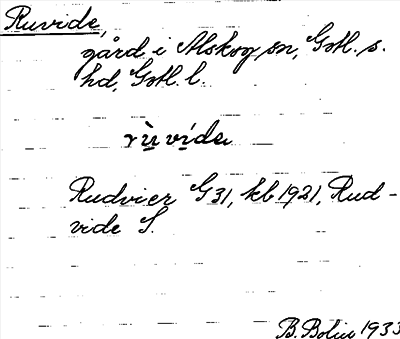 Ruvide,
gård i Alskog sn, Gotl. s.
hd, Gotl. l.
rùvída
Rudvier G31, kb 1921, Rud-
vide S.
B. Bolin 1933